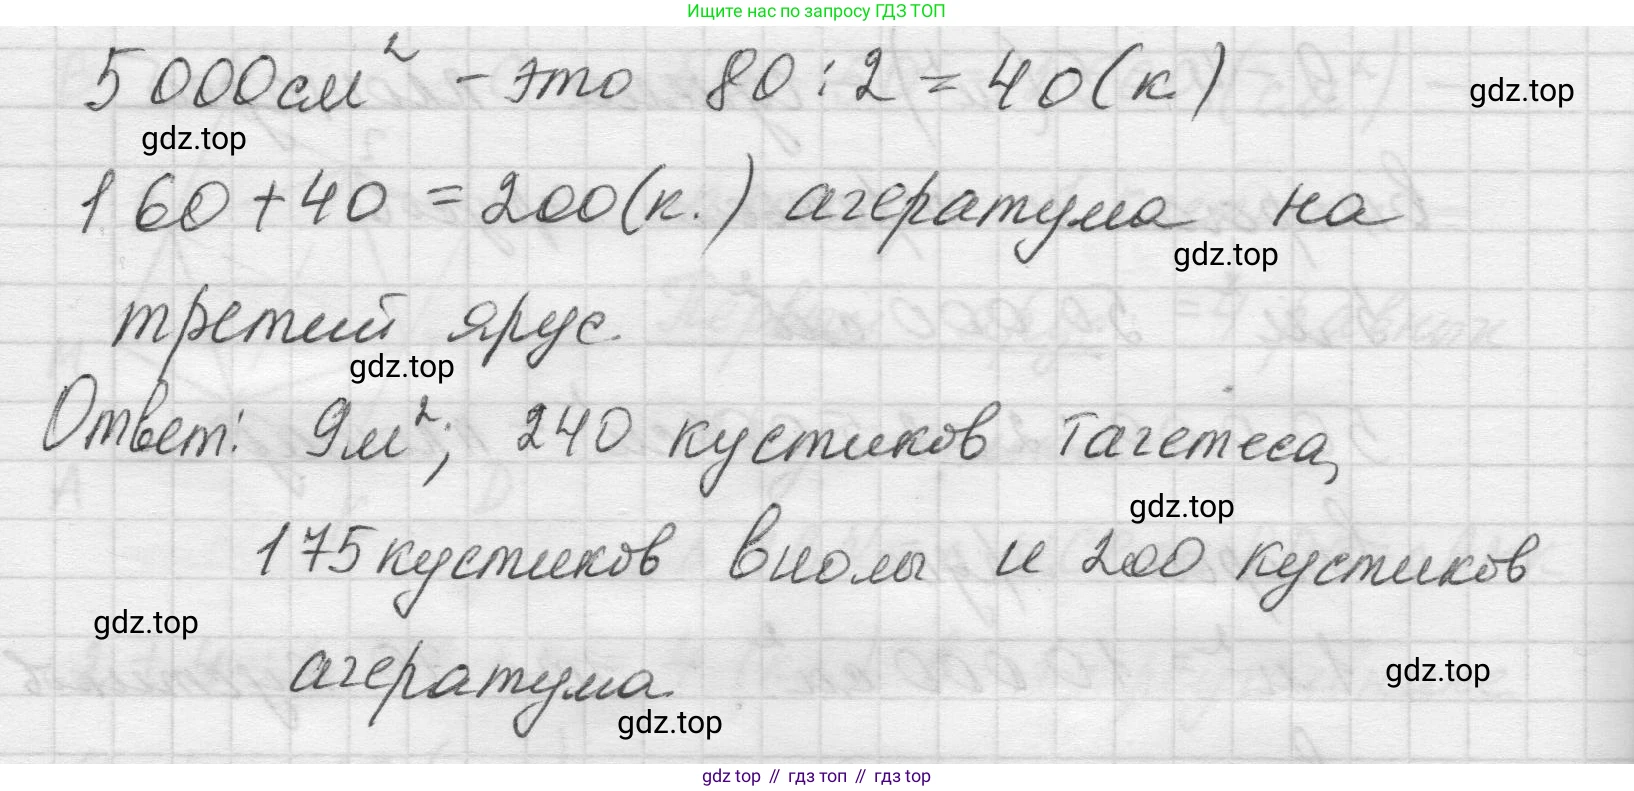 Ищите нас по запросу ГДЗ ТОП
5000см² - это 80 : 2 = 40 (к)
gdz.top
gdz.top
160 + 40 = 200 (к.) агератума на
gdz.top
третий ярус.
gdz.top
Ответ: 9м²; 240 кустиков тагетеса,
gdz.top
175 кустиков виолы и 200 кустиков
gdz.top
агератума.
gdz.top
gdz.top
gdz top // гдз топ // гдз top